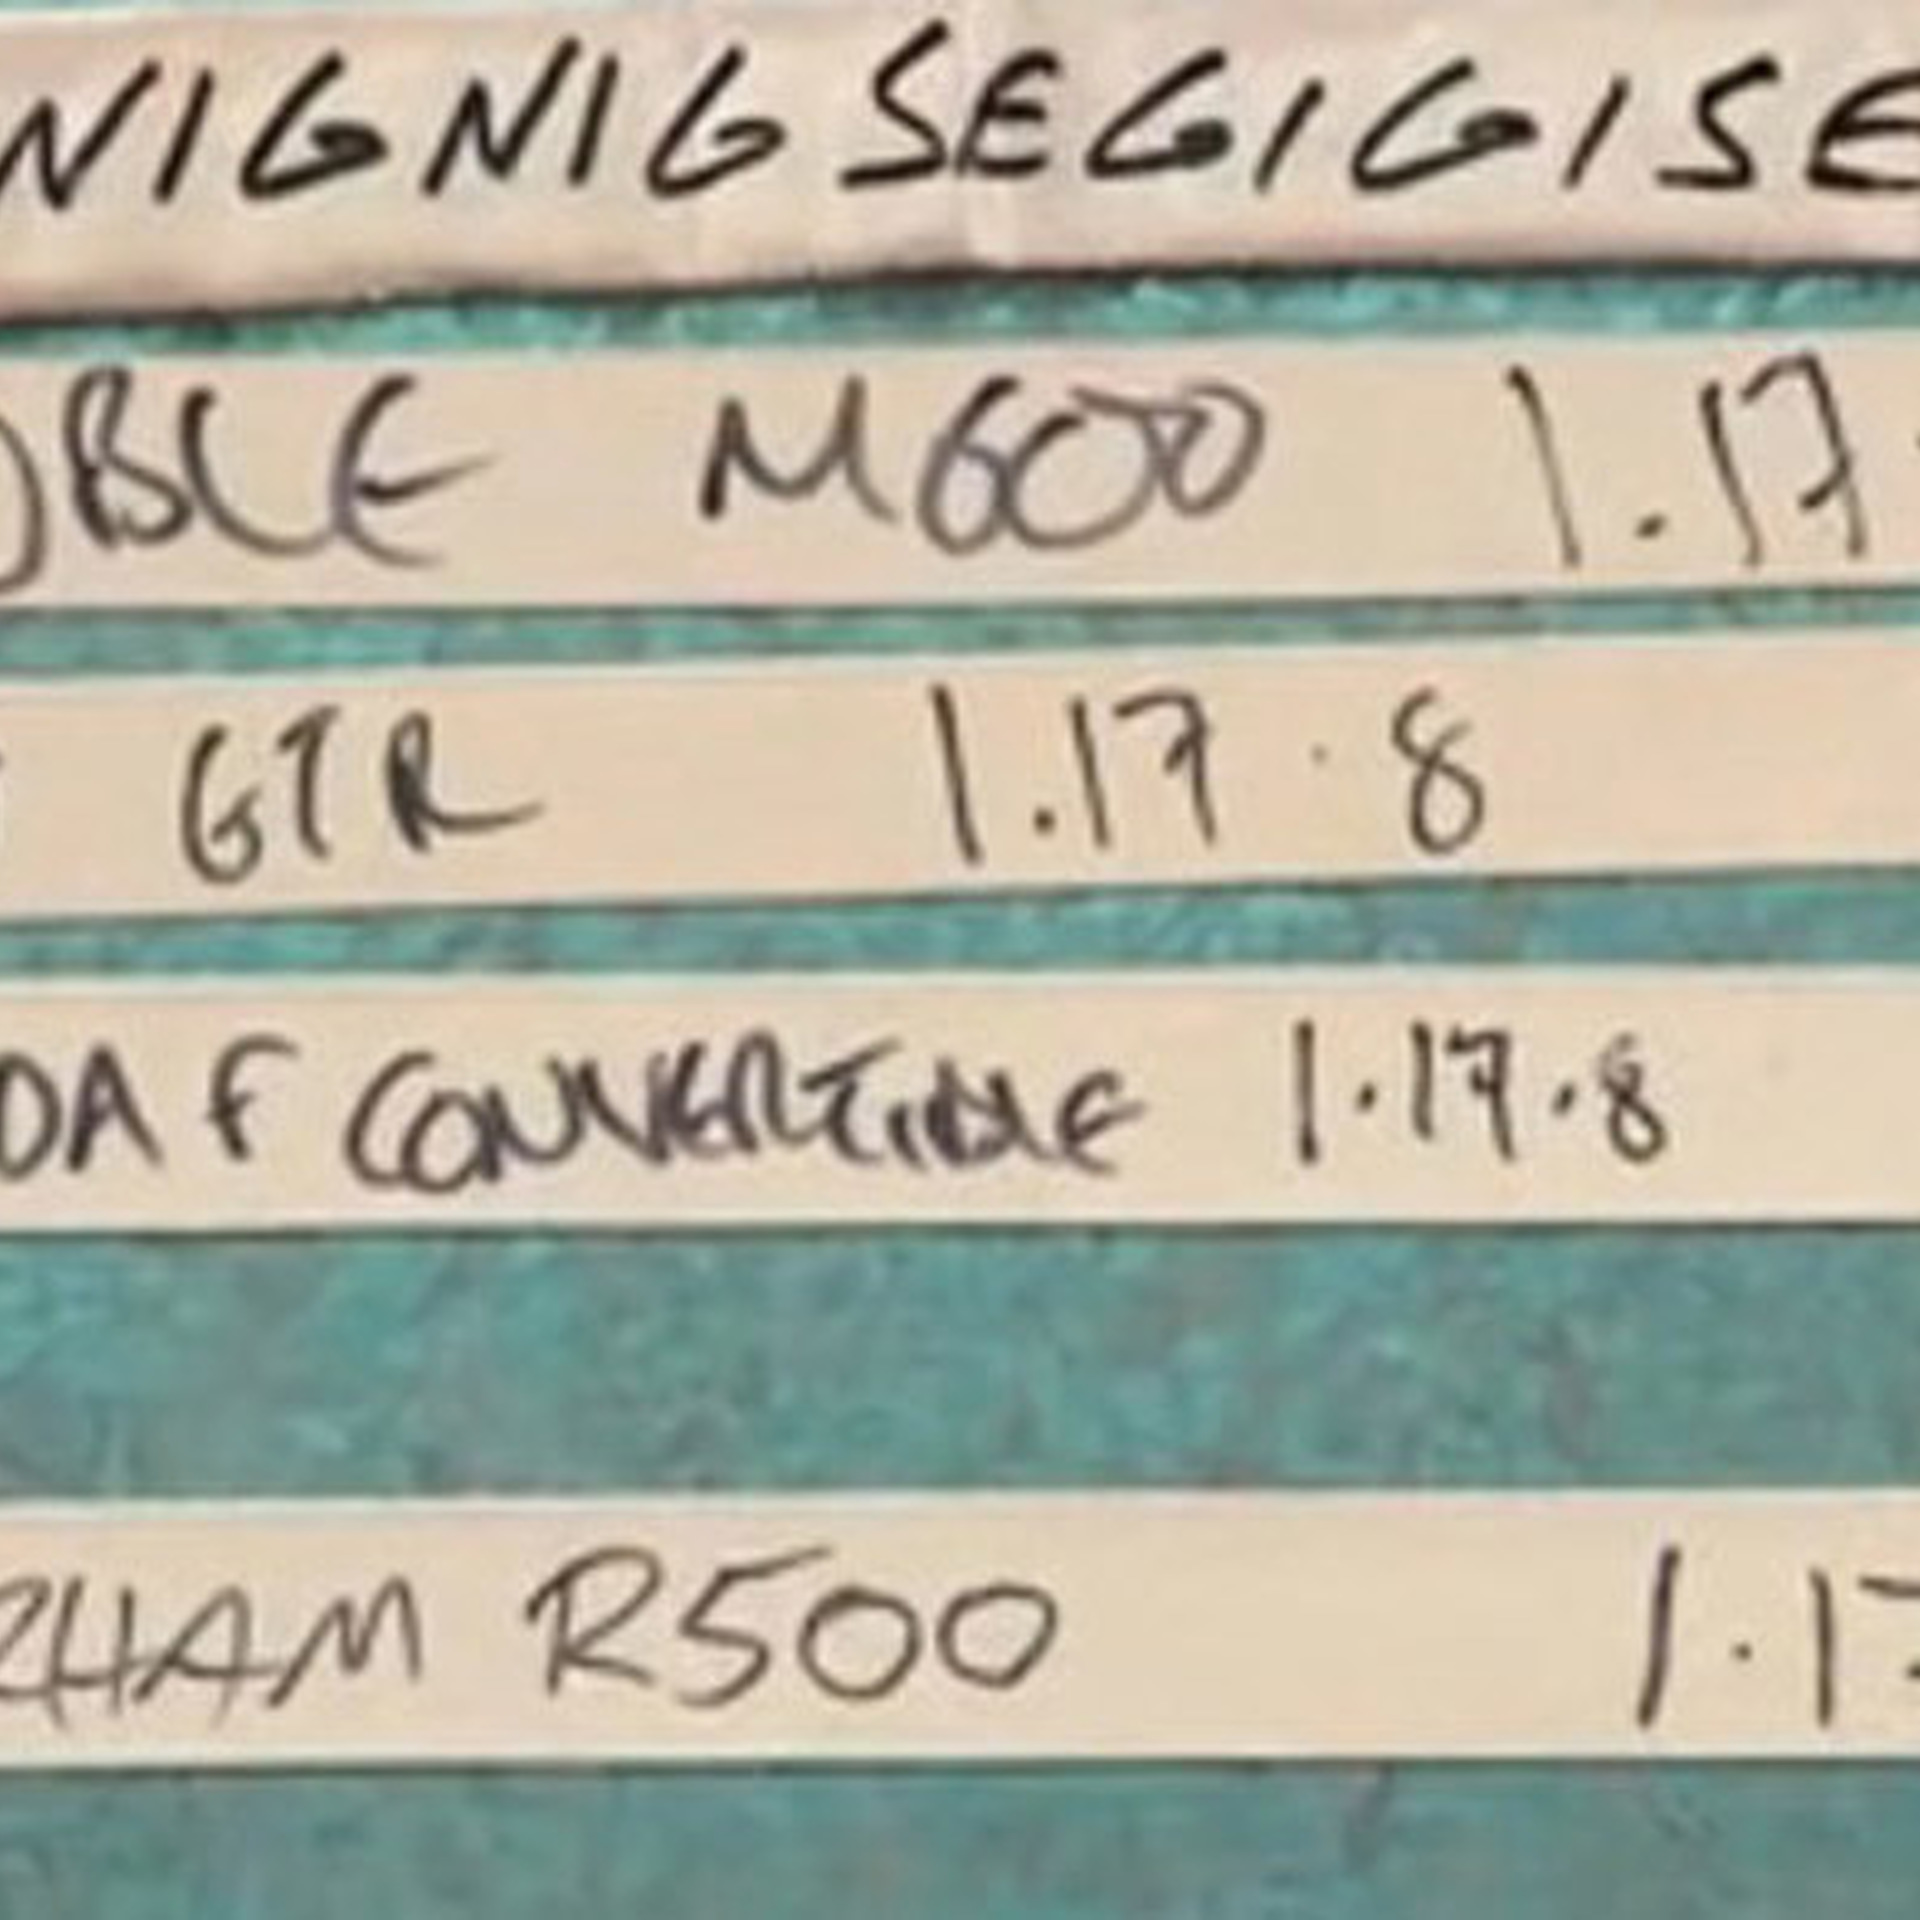 NIGNIGSEGIGISE
OBLE M600 1.17
GTR 1.17.8
DA F CONVERTIBLE 1.17.8
RHAM R500 1.17